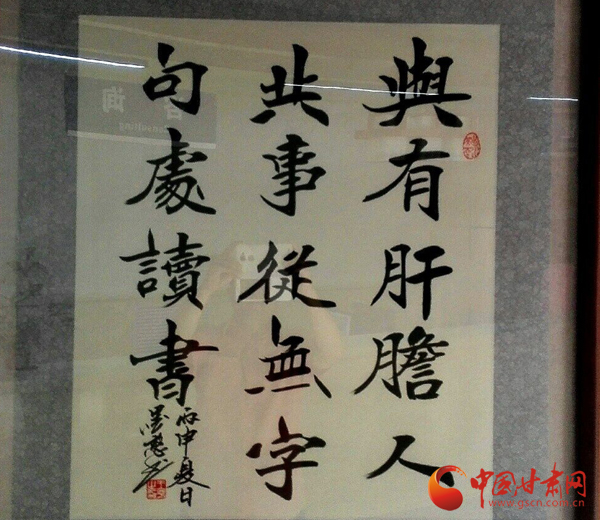 與有肝膽人
共事從無字
句處讀書
丙申夏日
中国甘肃网
www.gscn.com.cn